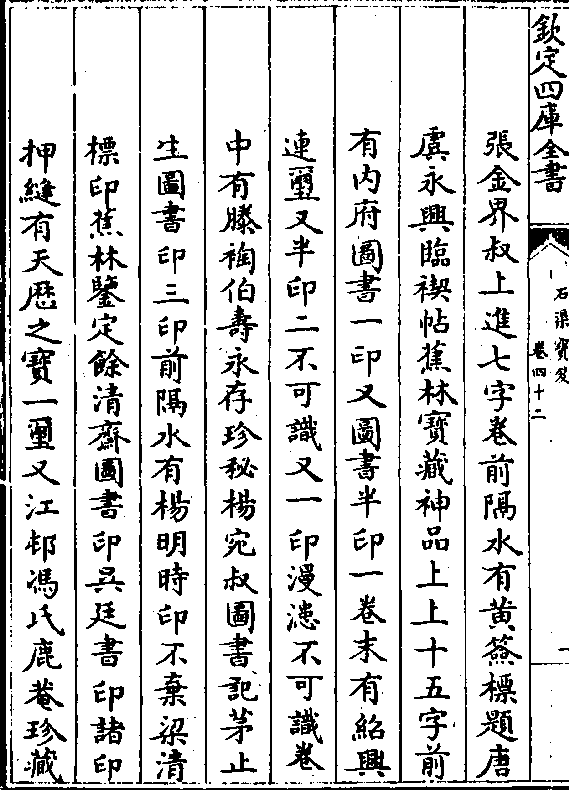 欽定四庫全書
石渠寳笈
卷四十二
一
張金界叔上進七字卷前隔水有黄籤標題唐
虞永興臨禊帖蕉林寶藏神品上上十五字前
有内府圖書一印又圖書半印一卷末有紹興
連璽又半印二不可識又一印漫漶不可識卷
中有滕祹伯壽永存珍秘楊宛叔圖書記茅止
生圖書印三印前隔水有楊明時印不棄梁清
標印蕉林鑒定餘清齋圖書印吳廷書印諸印
押縫有天厯之寶一璽又江邨馮氏鹿菴珍藏